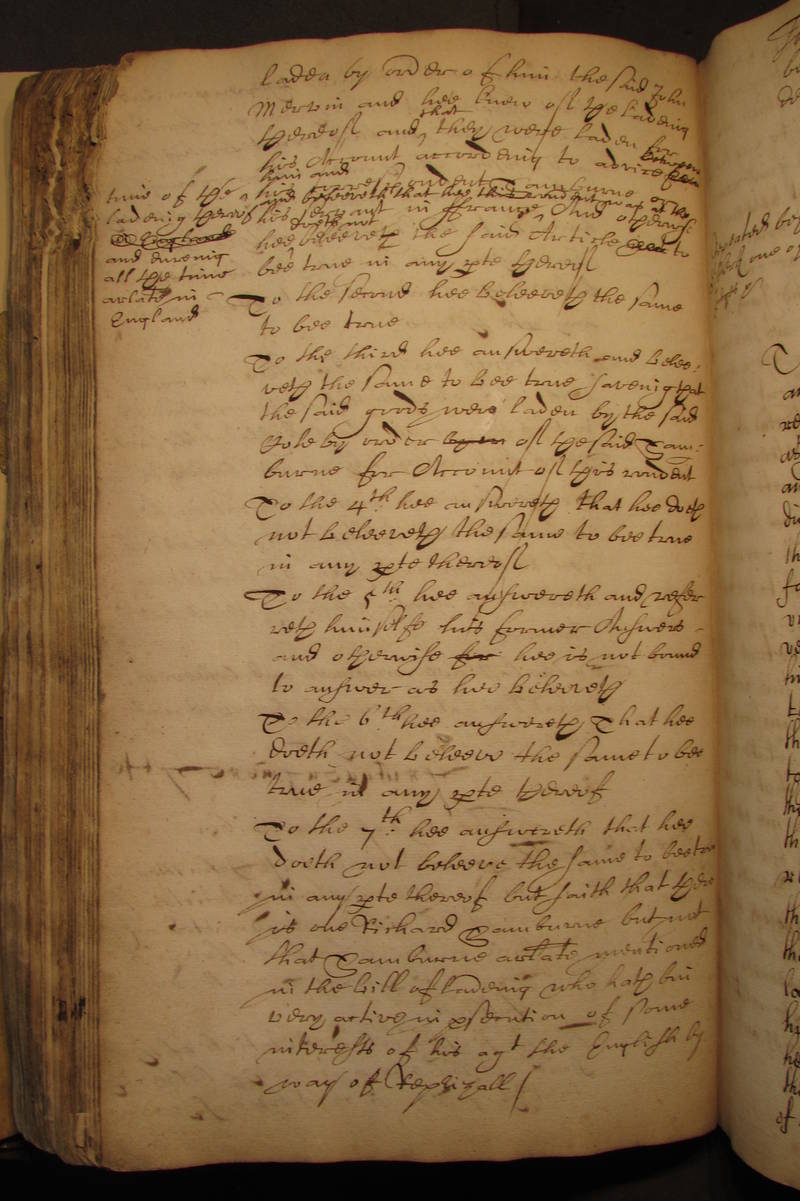 laden by order of him the said John
Mervin and hee knew of the ladeing
thereof and that they were laden for
his Account according to advice between
him and
his Correspondent Samburne
and beleeveth that hee this rondent was at the
time of the
ladeing thereof
and dureing
all the time
arlate in
England
his servant in France And otherwise
hee doeth not beleeveth the said Article to
bee true in any pte thereof
To the second hee beleeveth the same
to bee true
To the third hee answereth and belee,
veth the same to bee true saveing that
the said goods were laden by the said
Pole by order by of the said Sam:
burne for Account of this rondent
To the 4th hee answereth that hee doeth
not beleeveth the same to bee true
in any pte thereof
To the 5th hee answereth and refer
reth himselfe his former Answers
and otherwise for hee is not bound
to answer as hee beleeveth
To the 6th hee answereth That hee
doeth not beleeve the same to bee
true in any pte thereof
To the 7th hee answereth that hee
doeth not beleeve the same to bee true
in any pte thereof but saith that there
is one Richard Samburne but not
that Samburne arlate mentioned
in the bill of ladeing who hath bin
very active in psecution of some
interests of his agt the English by
way of Reprizall